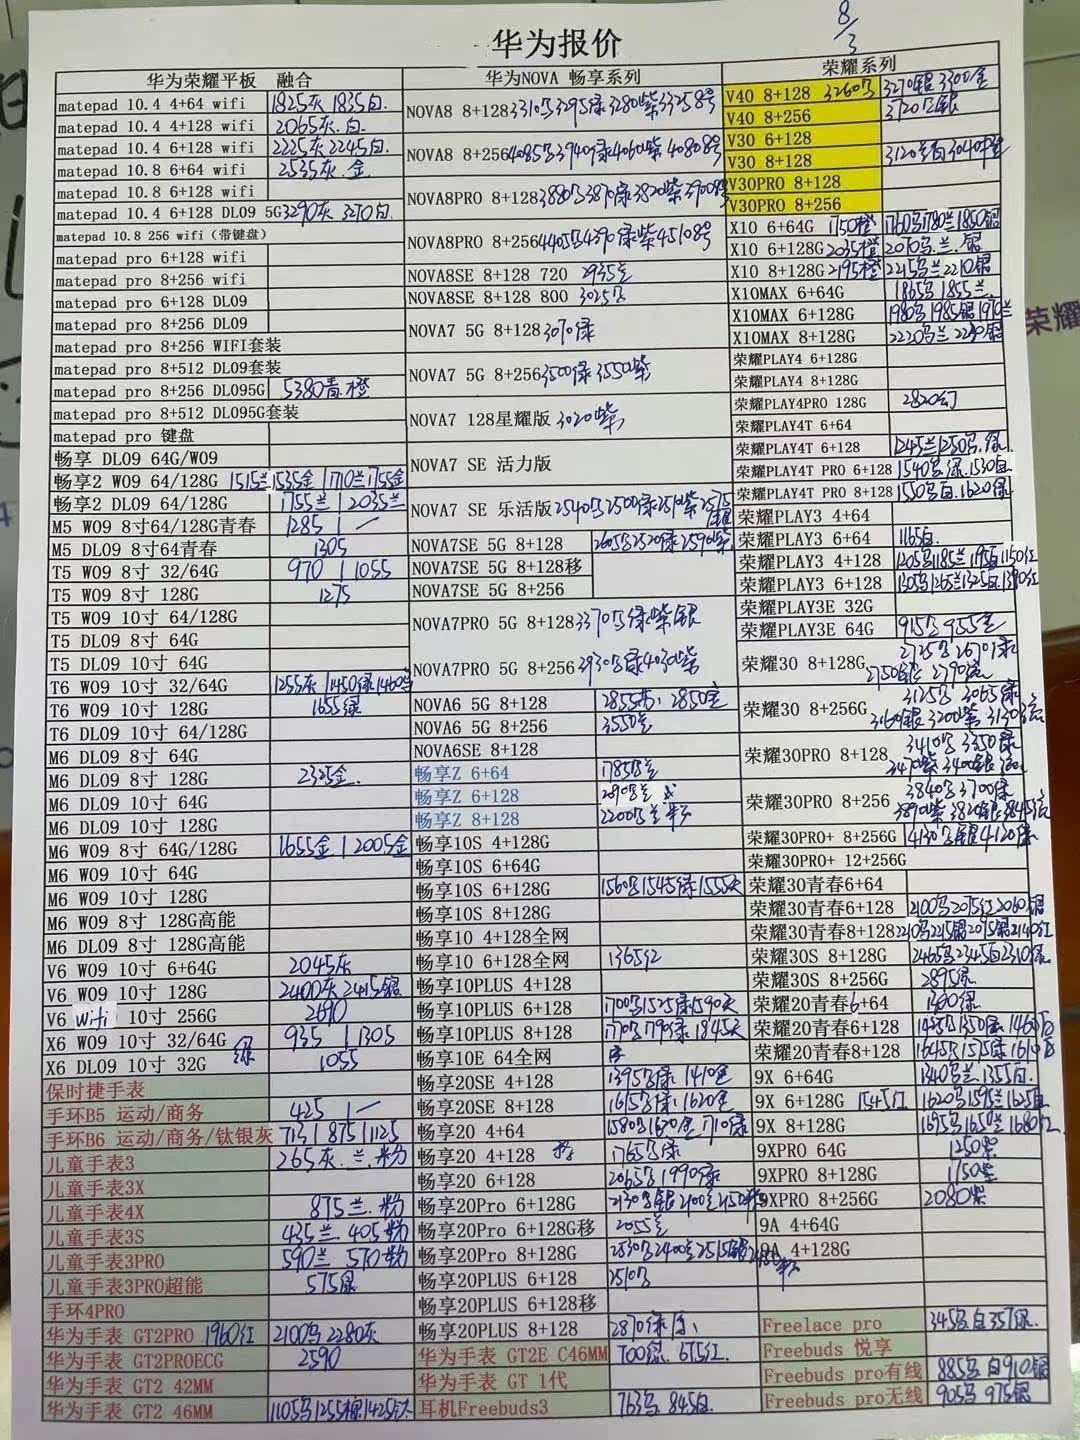 8/3
华为报价
华为荣耀平板 融合
matepad 10.4 4+64 wifi 1825灰 1835白.
matepad 10.4 4+128 wifi 2065灰.白.
matepad 10.4 6+128 wifi 2225灰 2245白.
matepad 10.8 6+64 wifi 2535灰.金
matepad 10.8 6+128 wifi
matepad 10.4 6+128 DL09 5G 3290灰 3270白.
matepad 10.8 256 wifi（带键盘）
matepad pro 6+128 wifi
matepad pro 8+256 wifi
matepad pro 6+128 DL09
matepad pro 8+256 DL09
matepad pro 8+256 WIFI套装
matepad pro 8+512 DL09套装
matepad pro 8+256 DL095G 5380青.橙
matepad pro 8+512 DL095G套装
matepad pro 键盘
畅享 DL09 64G/W09
畅享2 W09 64/128G 1515兰1535金 | 1710兰1755金
畅享2 DL09 64/128G 1755兰 | 2035兰
M5 W09 8寸64/128G青春 1285 | 一
M5 DL09 8寸64青春 1305
T5 W09 8寸 32/64G 970 | 1055
T5 W09 8寸 128G 1275
T5 W09 10寸 64/128G
T5 DL09 8寸 64G
T5 DL09 10寸 64G
T6 W09 10寸 32/64G 1255灰 | 1450绿
T6 W09 10寸 128G 1655绿
T6 DL09 10寸 64/128G
M6 DL09 8寸 64G
M6 DL09 8寸 128G 2325金.
M6 DL09 10寸 64G
M6 DL09 10寸 128G
M6 W09 8寸 64G/128G 1655金 | 2005金
M6 W09 10寸 64G
M6 W09 10寸 128G
M6 W09 8寸 128G高能
M6 DL09 8寸 128G高能
V6 W09 10寸 6+64G 2045灰
V6 W09 10寸 128G 2400灰 2415银
V6 wifi 10寸 256G 2690
X6 W09 10寸 32/64G 绿 935 | 1305
X6 DL09 10寸 32G 1055
保时捷手表
手环B5 运动/商务 425 | 一
手环B6 运动/商务/钛银灰 713 | 875 | 1125
儿童手表3 265灰.兰.粉
儿童手表3X
儿童手表4X 875兰.粉
儿童手表3S 435兰 405粉
儿童手表3PRO 590兰 570粉
儿童手表3PRO超能 575绿
手环4PRO
华为手表 GT2PRO 1960红 2100乌 2280灰
华为手表 GT2PROECG 2590
华为手表 GT2 42MM
华为手表 GT2 46MM 1105乌1255棕1425钛
华为NOVA 畅享系列
NOVA8 8+128 3310乌3295绿3280紫3325 8号
NOVA8 8+256 4085乌3940绿4060紫4080 8号
NOVA8PRO 8+128 3880乌3870绿3820紫3900 8号
NOVA8PRO 8+256 4405乌4390绿紫4510 8号
NOVA8SE 8+128 720 2935兰
NOVA8SE 8+128 800 3025乌
NOVA7 5G 8+128 3070绿
NOVA7 5G 8+256 3500绿3550紫
NOVA7 128星耀版 3020紫
NOVA7 SE 活力版
NOVA7 SE 乐活版 2540乌2500绿2510紫2575银
NOVA7SE 5G 8+128 2605乌2520绿2590紫
NOVA7SE 5G 8+128移
NOVA7SE 5G 8+256
NOVA7PRO 5G 8+128 3370乌绿紫银
NOVA7PRO 5G 8+256 2930乌绿4030紫
NOVA6 5G 8+128 2850兰
NOVA6 5G 8+256 3550兰
NOVA6SE 8+128
畅享Z 6+64 1785乌兰
畅享Z 6+128
畅享Z 8+128 2200乌兰
畅享10S 4+128G
畅享10S 6+64G
畅享10S 6+128G 1560乌1545绿1555天
畅享10S 8+128G
畅享10 4+128全网
畅享10 6+128全网 1365红
畅享10PLUS 4+128
畅享10PLUS 6+128 1700乌1525绿1590天
畅享10PLUS 8+128 1770乌1790绿1845天
畅享10E 64全网
畅享20SE 4+128 1395乌绿 1410金
畅享20SE 8+128 1615乌绿 1620金
畅享20 4+64 1580乌1630金1710绿
畅享20 4+128 1765乌绿
畅享20 6+128 2065乌1990绿
畅享20Pro 6+128G 2130乌银2100兰
畅享20Pro 6+128G移 2055兰
畅享20Pro 8+128G 2830乌2400兰2515银
畅享20PLUS 6+128 2510乌
畅享20PLUS 6+128移
畅享20PLUS 8+128
华为手表 GT2E C46MM 700绿.675红.
华为手表 GT 1代
耳机Freebuds3 763乌.845白.
荣耀系列
V40 8+128 3260乌 3270银 3300金
V40 8+256 3720乌银
V30 6+128
V30 8+128
V30PRO 8+128
V30PRO 8+256
X10 6+64G 1750橙 1760乌1780兰1850银
X10 6+128G 2035橙 2070乌.兰.银
X10 8+128G 2195橙 2215乌兰2210银
X10MAX 6+64G 1865乌1855兰
X10MAX 6+128G 1980乌1985银1970兰
X10MAX 8+128G 2220乌兰2290银
荣耀PLAY4 6+128G
荣耀PLAY4 8+128G
荣耀PLAY4PRO 128G 2820幻
荣耀PLAY4T 6+64
荣耀PLAY4T 6+128 1245兰1250乌.绿
荣耀PLAY4T PRO 6+128 1540乌绿.1530白
荣耀PLAY4T PRO 8+128 1550乌白1620绿
荣耀PLAY3 4+64
荣耀PLAY3 6+64 1165白.
荣耀PLAY3 4+128 1205乌1185兰1195白1150红
荣耀PLAY3 6+128 1305乌1265兰1325白1390红
荣耀PLAY3E 32G
荣耀PLAY3E 64G 915乌955兰
荣耀30 8+128G 2725乌2670绿
荣耀30 8+256G 3125乌3065绿
荣耀30PRO 8+128 3410乌3350绿
荣耀30PRO 8+256 3840乌3700绿
荣耀30PRO+ 8+256G 4130乌银4120绿
荣耀30PRO+ 12+256G
荣耀30青春6+64
荣耀30青春6+128 2100乌2075红2060银
荣耀30青春8+128
荣耀30S 8+128G 2465乌2345白2310绿
荣耀30S 8+256G 2895绿
荣耀20青春6+64 1390绿
荣耀20青春6+128
荣耀20青春8+128 1645乌1575绿1610白
9X 6+64G 1340乌兰.1355白.
9X 6+128G 1545红 1620乌1595兰1625白
9X 8+128G 1695乌1650兰1680红
9XPRO 64G 1250紫
9XPRO 8+128G 1750紫
9XPRO 8+256G 2080紫
9A 4+64G
9A 4+128G
Freelace pro 345乌.白357绿.
Freebuds 悦享
Freebuds pro有线 885乌 白910银
Freebuds pro无线 905乌 975银
荣耀